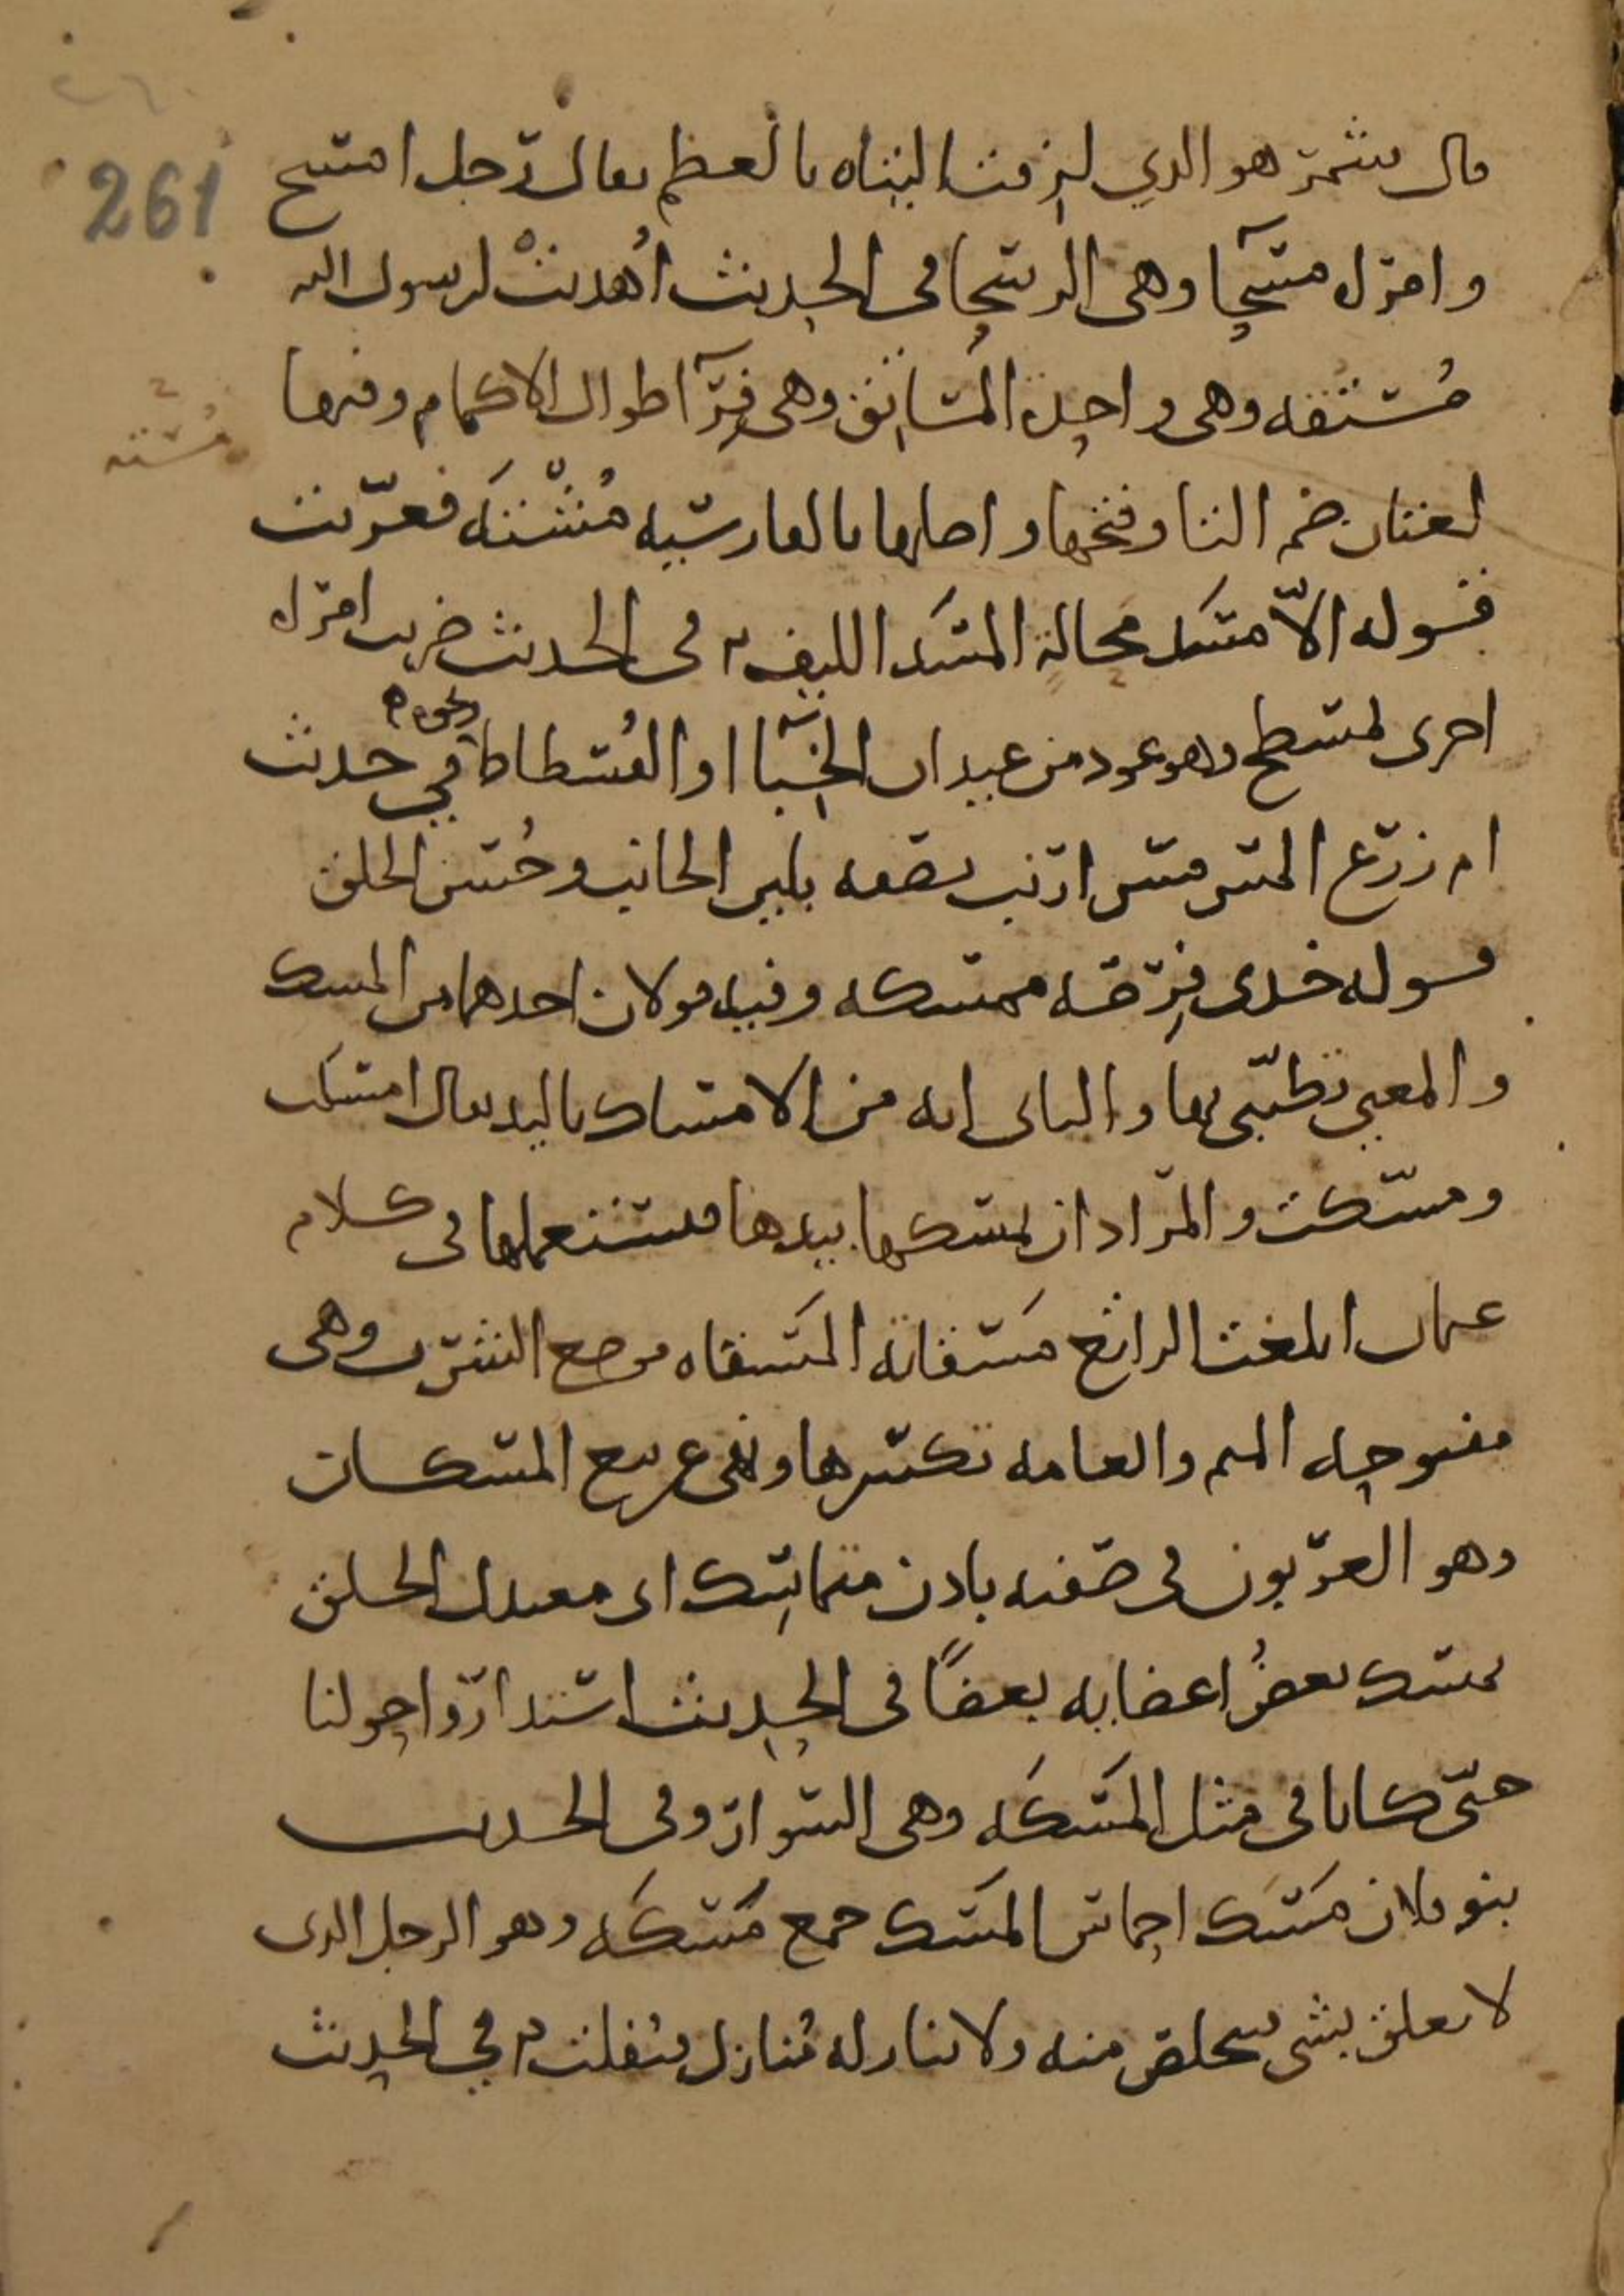 261
قال شمر هو الذي لزقت اليتاه بالعظم يقال رجل امسح
وامراه مسحا وهي الرسحا في الحديث اُهديت لرسول الله
مُستقه وهي واحدة المساتق وهي فِرآ طوال الاكمام وفيها
مُسته
لغتان ضم التا وفتحها واصلها بالفارسيه مُشْتَه فعرّبت
قوله الاّ مسَد محالة المسَد الليف في الحديث ضربت امراه
اخرى بمسطح وهو عود من عيدان الخِبآ او الفُسطاط ونحوه في حديث
ام زرع المس مس ارنب تصفه بلين الجانب وحُسن الخلق
قوله خذي فِرصه ممسكه وفيه قولان احدهما من المسك
والمعنى تطيّبي بها والثاني انه من الامساك باليد يقال امسكت
ومسّكت والمراد ان تمسكها بيدها فتستعملها في كلام
عثمان ابلغت الراتع مَسقاته المَسقاه موضع الشرب وهي
مفتوحه الميم والعامه تكسرها ونهى عن بيع المسكان
وهو العربون في صفته بادن متماسِك اي معتدل الخلق
يمسك بعضُ اعضايه بعضًا في الحديث
حتّى كانا في مثل المَسَكَه وهي السوار وفي الحديث
بنو فلان مَسَك احماس المَسَك جمع مُسَكَه وهو الرجل الذي
لا يعلق بشي فيتخلص منه ولا ينازله مُنازل فيفلت في الحديث